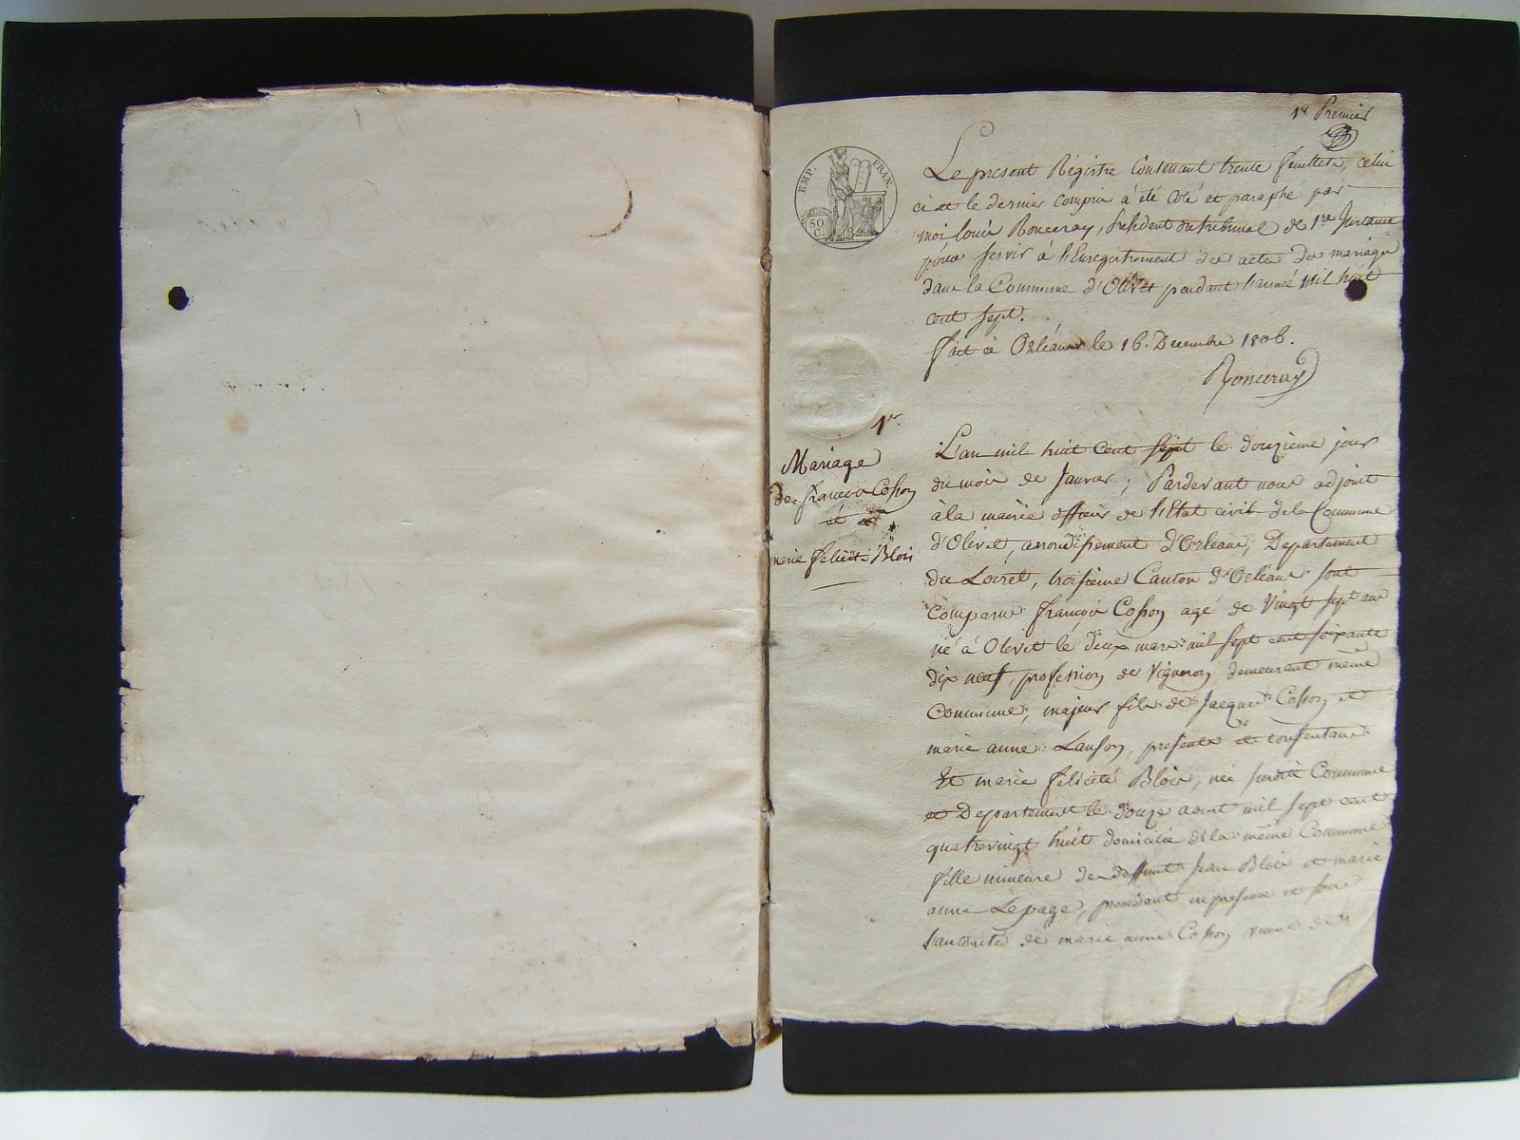 1er Premier
EMP. FRAN.
50 C.
Le present Régistre Contenant trente feuillets, celui
ci et le dernier compris à été coté et paraphé par
moi louis Ronceray, President du tribunal de 1re Instance
pour servir à l'Enregistrement des actes de mariage
dans la Commune d'Olivet pendant l'année Mil huit
cent sept.
fait à Orléans le 16. Decembre 1806.
Ronceray
1er
Mariage
de françois Cosson
et
marie felicité Blois
L'an mil huit cent sept le douzieme jour
du mois de Janvier ; Pardevant nous adjoint
à la mairie officier de l'Etat civil de la Commune
d'Olivet, arrondissement d'Orleans, Departement
du Loiret, troisieme Canton d'Orleans sont
comparus françois Cosson agé de Vingt sept ans
né à Olivet le deux mars mil sept cent soixante
dix neuf, profession de Vigneron demeurant même
Commune, majeur fils de Jacques Cosson et
marie anne Lanson, presents et consentans
Et marie felicité Blois, née susdite Commune
et Departement le douze aout mil sept cent
quatrevingt huit domiciliée de la même Commune
fille mineure de deffunt Jean Blois et marie
anne Lepage, procédant en presence et sous
l'autorité de marie anne Cosson veuve de